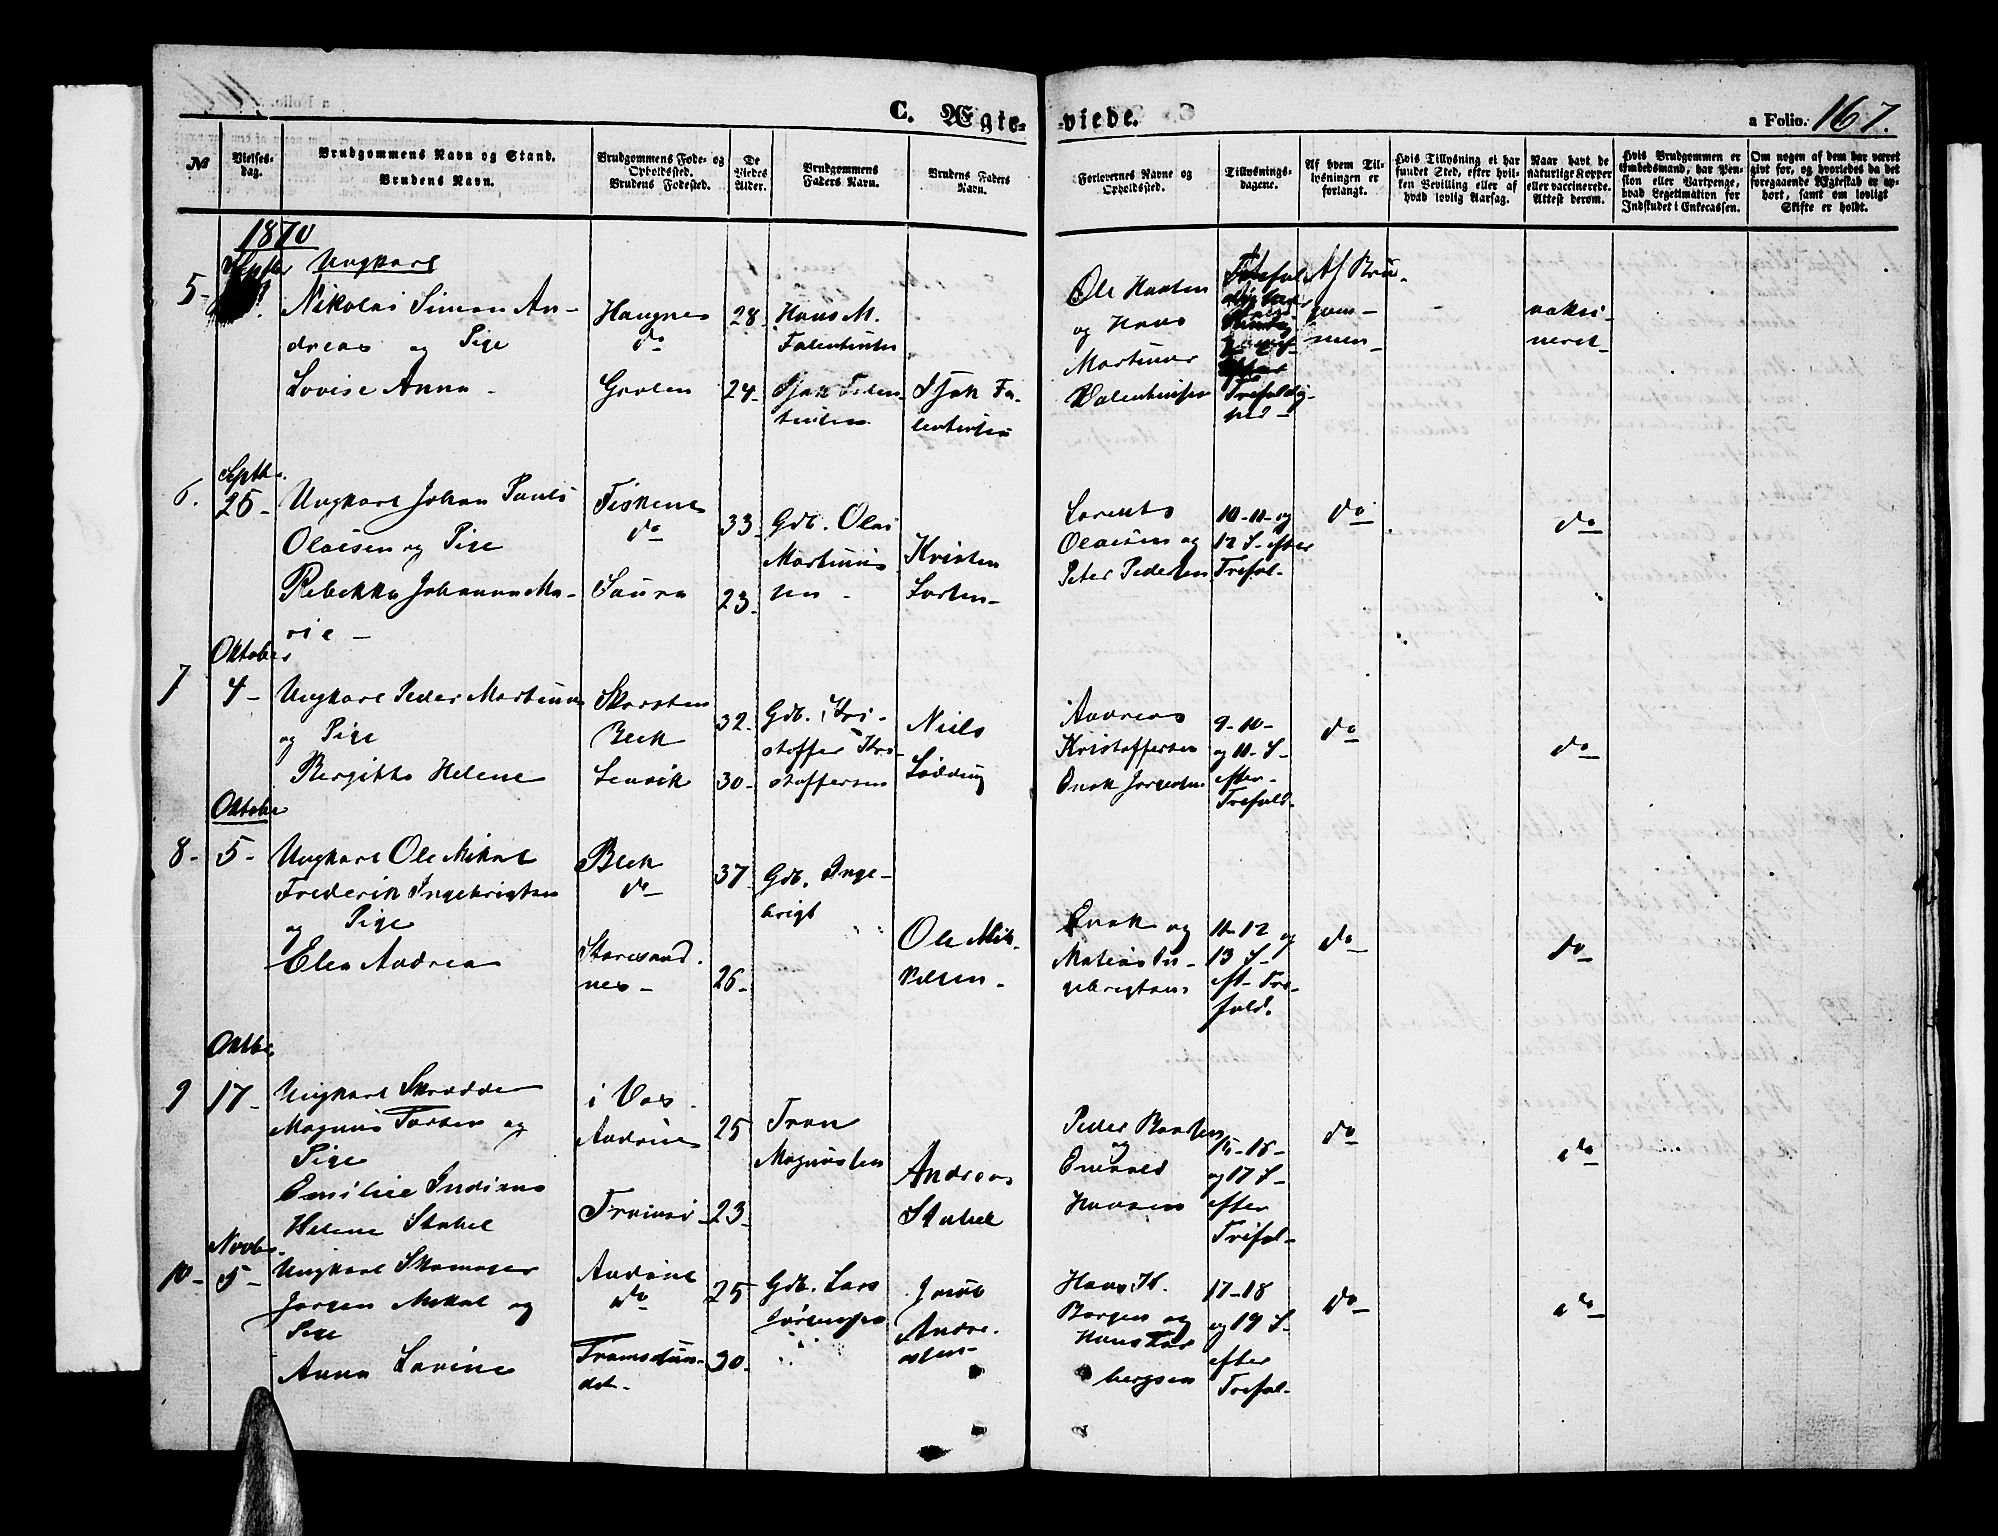 C. Ægte-
viede.
a Folio. 167.
№
Vielses-
dag.
Brudgommens Navn og Stand.
Brudens Navn.
Brudgommens Føde- og
Opholdssted.
Brudens Fødested.
De
Viedes
Alder.
Brudgommens
Faders Navn.
Brudens Faders
Navn.
Forlovernes Navne og
Opholdssted.
Tillysnings-
dagene.
Af hvem Til-
lysningen er
forlangt.
Hvis Tillysning ei har
fundet Sted, efter hvil-
ken Bevilling eller af
hvad lovlig Aarsag.
Naar havt de
naturlige Kopper
eller vaccinerede.
Attest derom.
Hvis Brudgommen er
Embedsmand, har Pen-
sion eller Vartpenge,
hvad Legitimation for
Indskudet i Enkecassen.
Om nogen af dem har været
givt før, og hvorledes da det
foregaaende Ægteskab er op-
hørt, samt om lovligt
Skifte er holdt.
1870
5-
Ungkarl
Nikolai Simon An-
dreas og Pige
Lovise Anna -
Haugnes
do
Grolen
28.
24-
Hans M.
Falentinsen
Isak Falen-
tinsen
Isak Fa-
lentinsen
Ole Hansen
og Hans
Martinus
Valentinsen
Trefoldig-
hed -
Af Bru-
gom-
men-
vaksi-
neret-
6.
Septb.
25-
Ungkarl Johan Pauls
Olaisen og Pige
Rebekka Johanna Ma-
rie -
Fiskenes
do
Saura
33-
23-
Gdb. Olai
Martinus
sen -
Kristen
Larsen-
Lorents
Olaisen og
Peter Pedersen
10-11- og
12 S- efter
Trefol-
do
do
7
Oktober
4-
Ungkarl Peder Martinus
og Pige
Bergitte Helene
Skarsten
Bleik
Lenvik
32-
30-
Gdb. Kri-
stoffer Kri-
stoffersen
Niels
Lødding
Andreas
Kristoffersen
Enok Jørgensen
9-10-
og 11- S-
efter-
Trefold-
do
do
8-
Oktober
5-
Ungkarl Ole Mikal
Frederik Ingebrigtsen
og Pige
Elen Andrea
Bleik
do
Skaresand
nes-
37-
26-
Gdb. Inge-
brigt
Ole Mik-
kelsen-
Enok og
Matias In-
gebrigtsen
11-12 og
13 S-
eft- Tre-
fold.
do
do
9
Oktbe.
17-
Ungkarl Skrædder
Magnus Torsen og
Pige
Emilie Indiana
Helene Stabel
i Vas.
Andøine
25
23-
Tron
Magnussen
Andreas
Stabel
Peder Baasten
og
Enevold
Hansen
15-16-
og 17 S-
efter
Trifol-
do
do
10-
Novbe.
5-
Ungkarl Skomager
Jørgen Mikal og
Pige
Anna Lovine
Andøine
do
Tromsdsun-
det-
25
30-
Gdb. Lars
Jørgensen
Jacob
Andre-
asen-
Hans H.
Borgen og
Hans Tor
bergsen
17-18
og 19 S-
efter
Trefol-
do
do